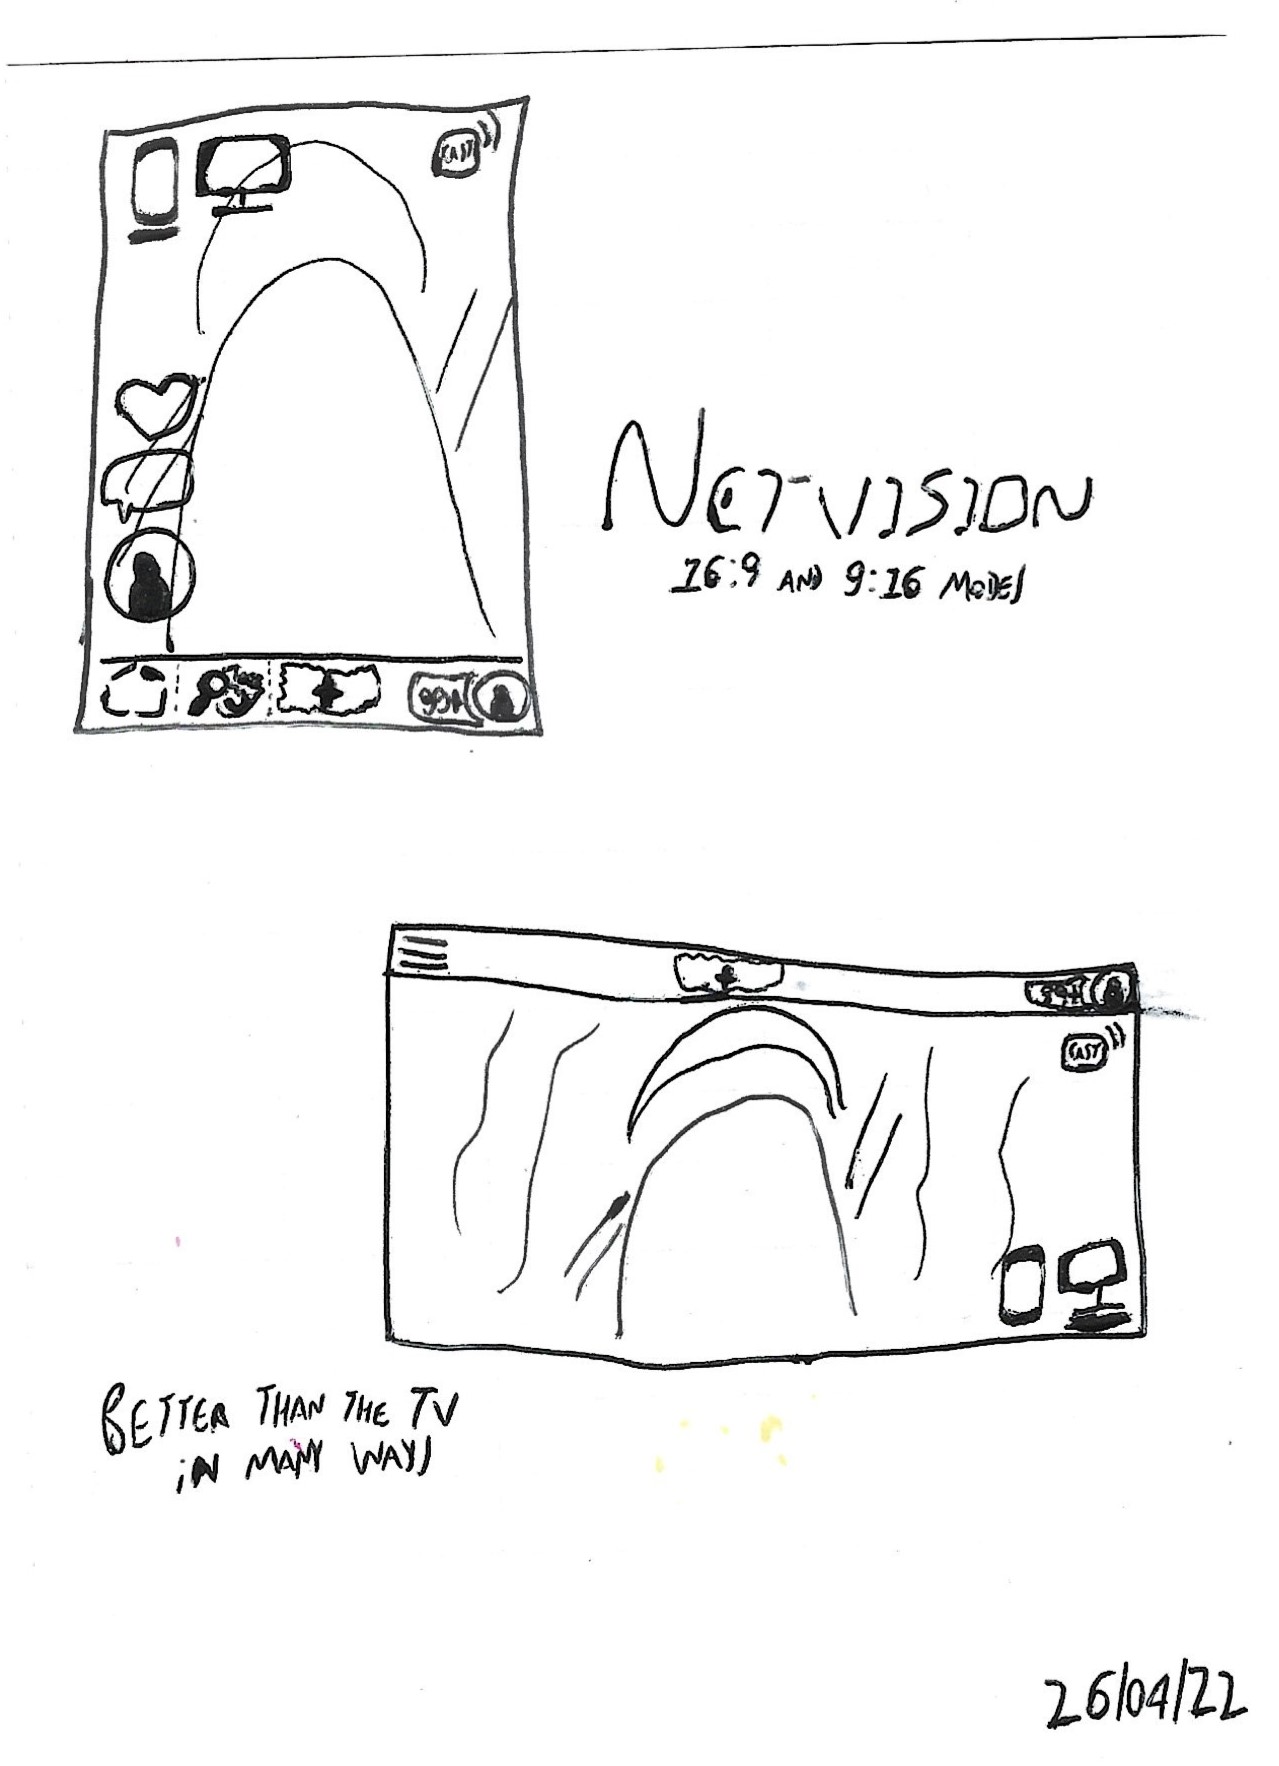 CAST
NETVISION
16:9 AND 9:16 MODES
99+
99+
CAST
BETTER THAN THE TV
iN MANY WAYS
26/04/22